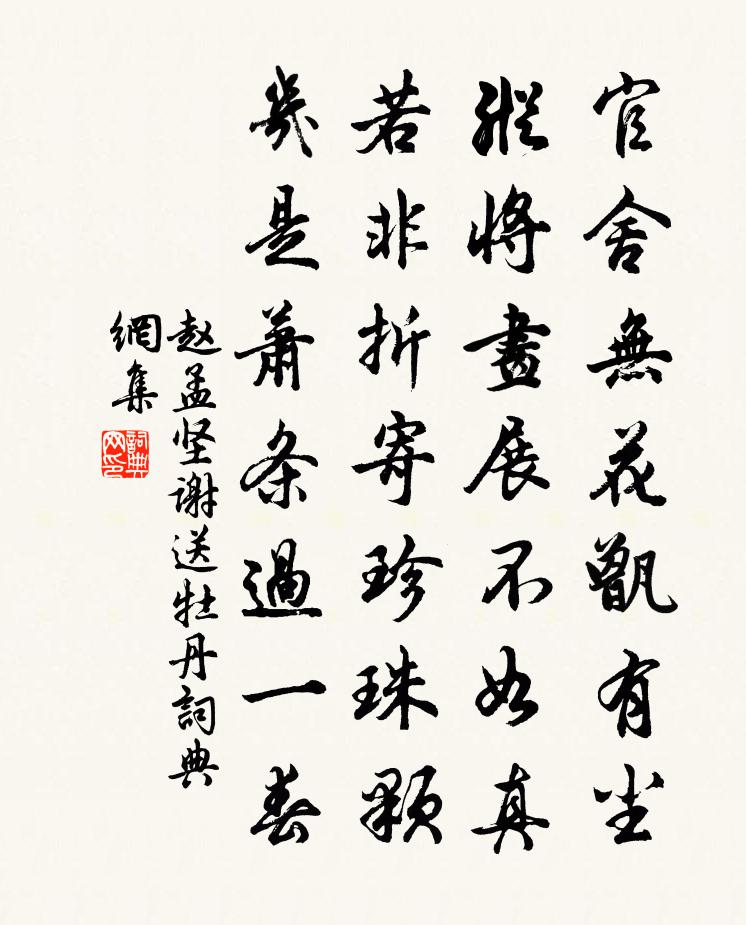 官舍無花甑有尘
縱將畫展不如真
若非折寄珍珠顆
幾是蕭条過一春
赵孟坚謝送牡丹詞典
網集
詞典网印